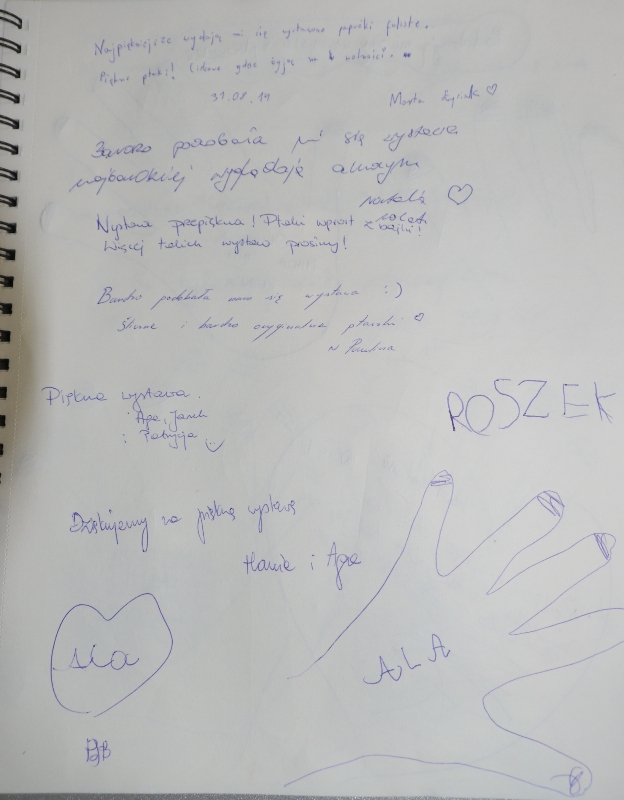 Najpiękniejsze wydają mi się wystawne papużki faliste.
Piękne ptaki! Ciekawe gdzie żyją na wolności.
31.08.19 Marta ♡
Bardzo podobała mi się wystawa
najbardziej wyglądają
Natalia ♡
Wystawa przepiękna! Ptaki wprost z bajki!
Więcej takich wystaw prosimy!
Bardzo podobała nam się wystawa :)
Śliczne i bardzo oryginalne ptaszki ♡
Paulina
Piękna wystawa.
Aga, Jarek
i Patrycja
ROSZEK
Dziękujemy za piękną wystawę
Hania i Aga
ALA